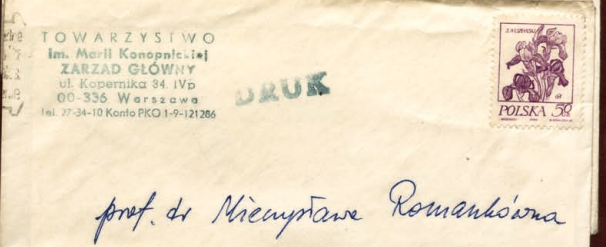 TOWARZYSTWO
im. Marii Konopnickiej
ZARZĄD GŁÓWNY
ul. Kopernika 34. IVp
00-336 Warszawa
tel. 27-34-10 Konto PKO 1-9-121286
DRUK
POLSKA 50
prof. dr Mieczysława Romankówna